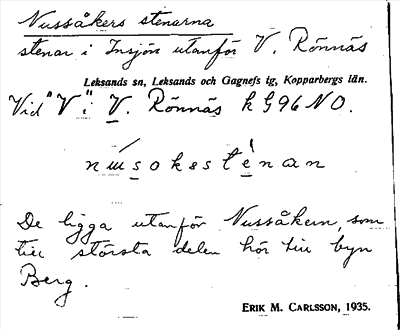 Nussåkers stenarna
stenar i Insjön utanför V. Rönnäs
Leksands sn, Leksands och Gagnefs tg, Kopparbergs län.
Vid "V": V. Rönnäs k G96 NO.
De ligga utanför Nussåkern, som
till största delen hör till byn
Berg.
ERIK M. CARLSSON, 1935.